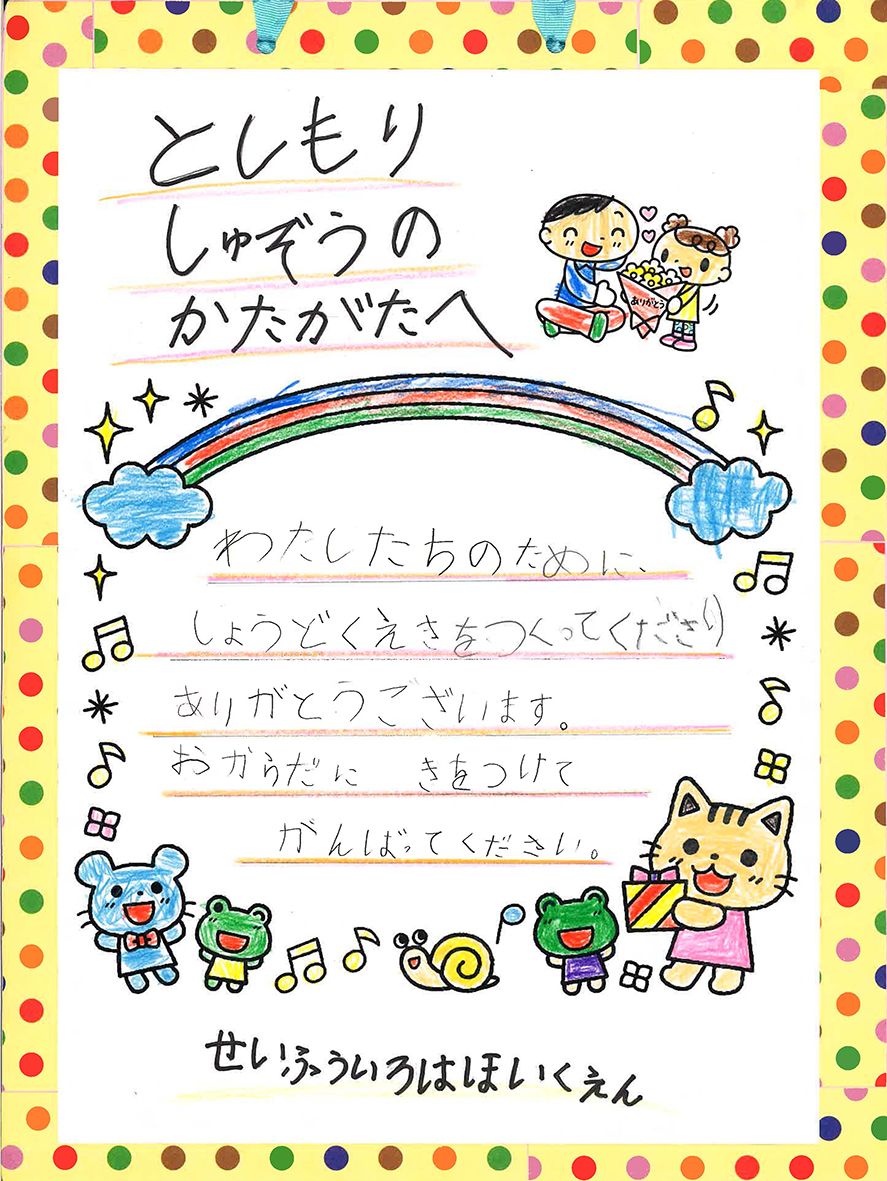 としもり
しゅぞうの
かたがたへ
ありがとう
わたしたちのために、
しょうどくえきをつくってくださり
ありがとうございます。
おからだに きをつけて
がんばってください。
せいふういろはほいくえん